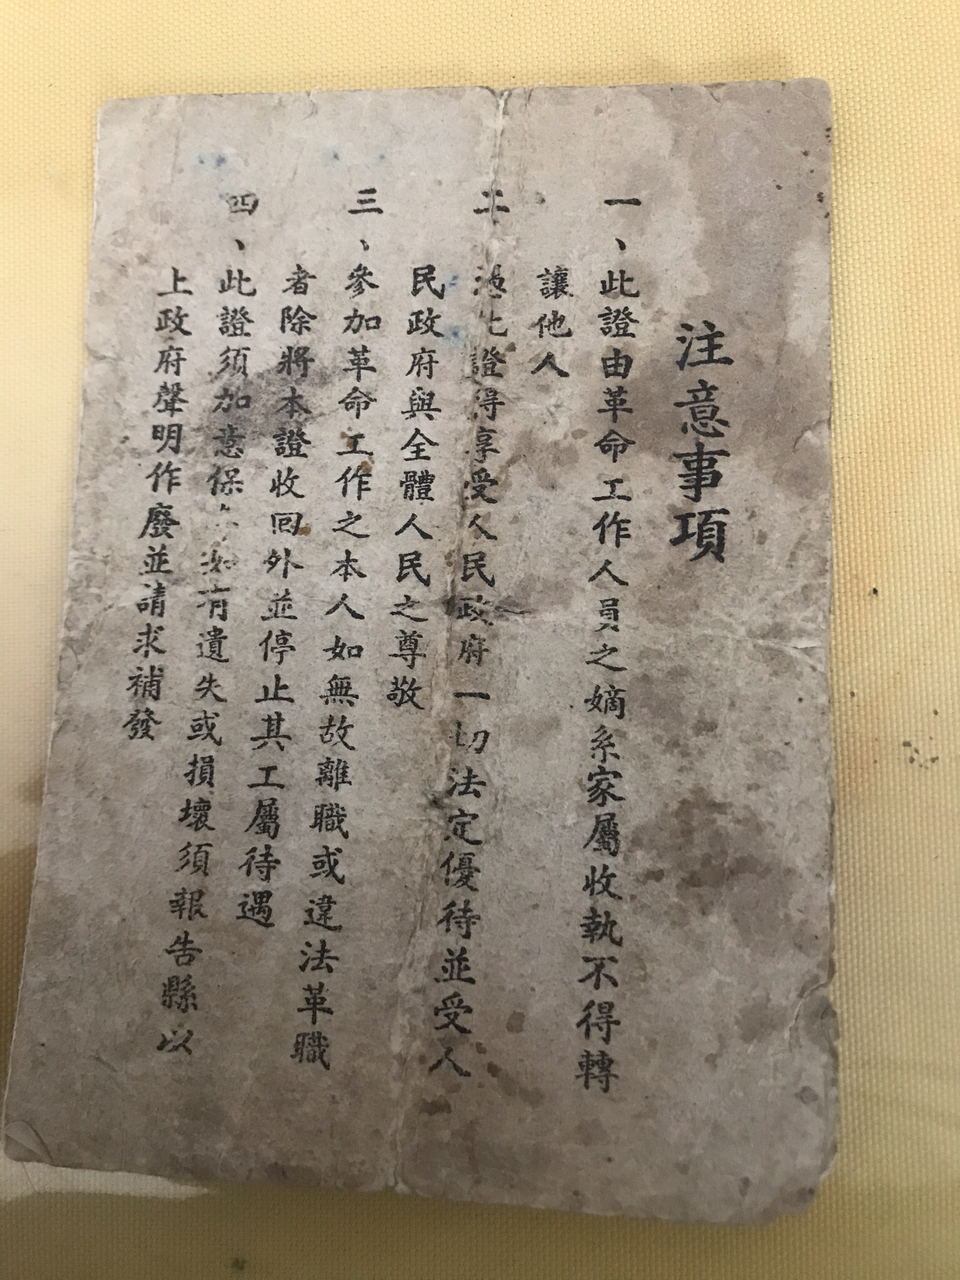 注意事項
一、此證由革命工作人員之嫡系家屬收執不得轉
讓他人
二、憑此證得享受人民政府一切法定優待並受人
民政府與全體人民之尊敬
三、參加革命工作之本人如無故離職或違法革職
者除將本證收回外並停止其工屬待遇
四、此證須加意保 如有遺失或損壞須報告縣以
上政府聲明作廢並請求補發